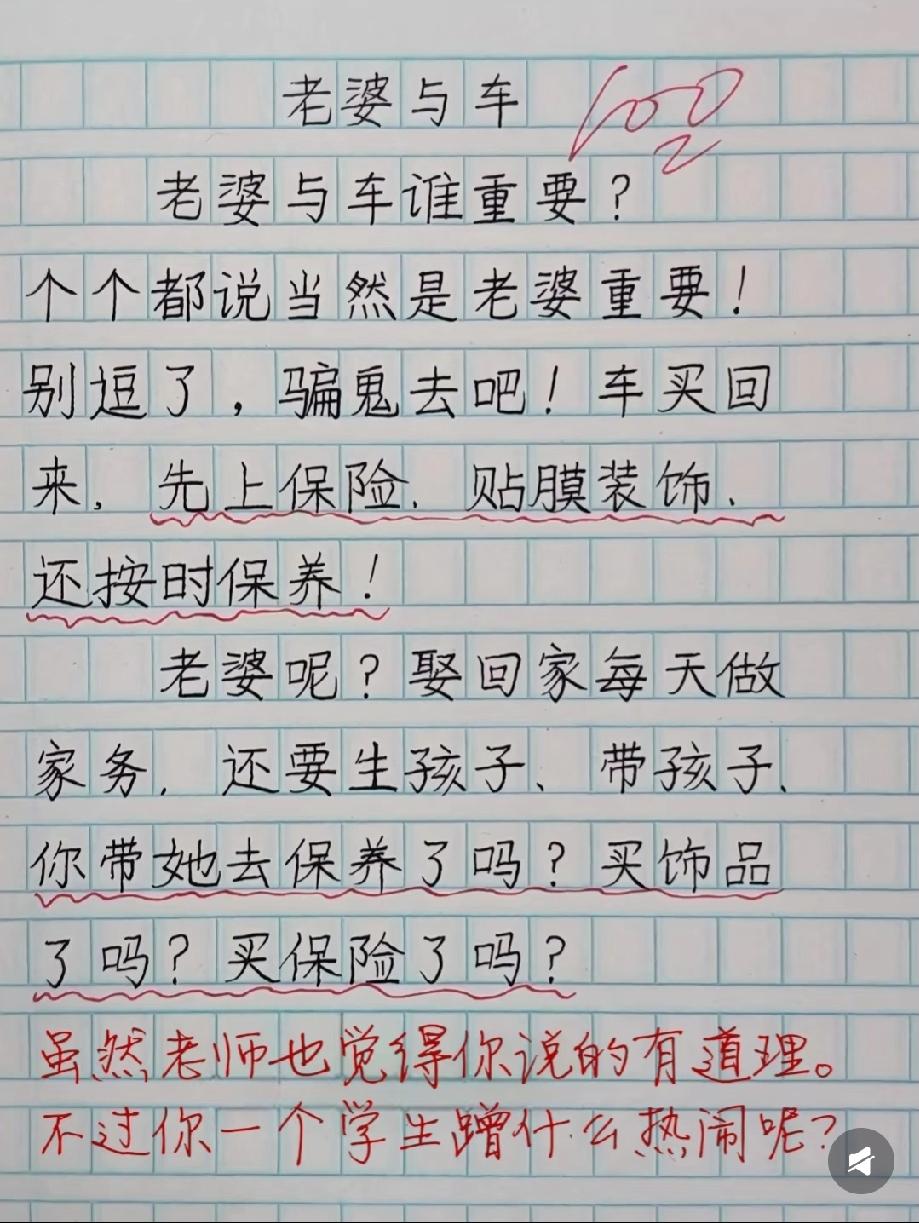 老婆与车
100
老婆与车谁重要?
个个都说当然是老婆重要!
别逗了,骗鬼去吧!车买回
来,先上保险、贴膜装饰、
还按时保养!
老婆呢?娶回家每天做
家务,还要生孩子、带孩子、
你带她去保养了吗?买饰品
了吗?买保险了吗?
虽然老师也觉得你说的有道理。
不过你一个学生蹭什么热闹呢?